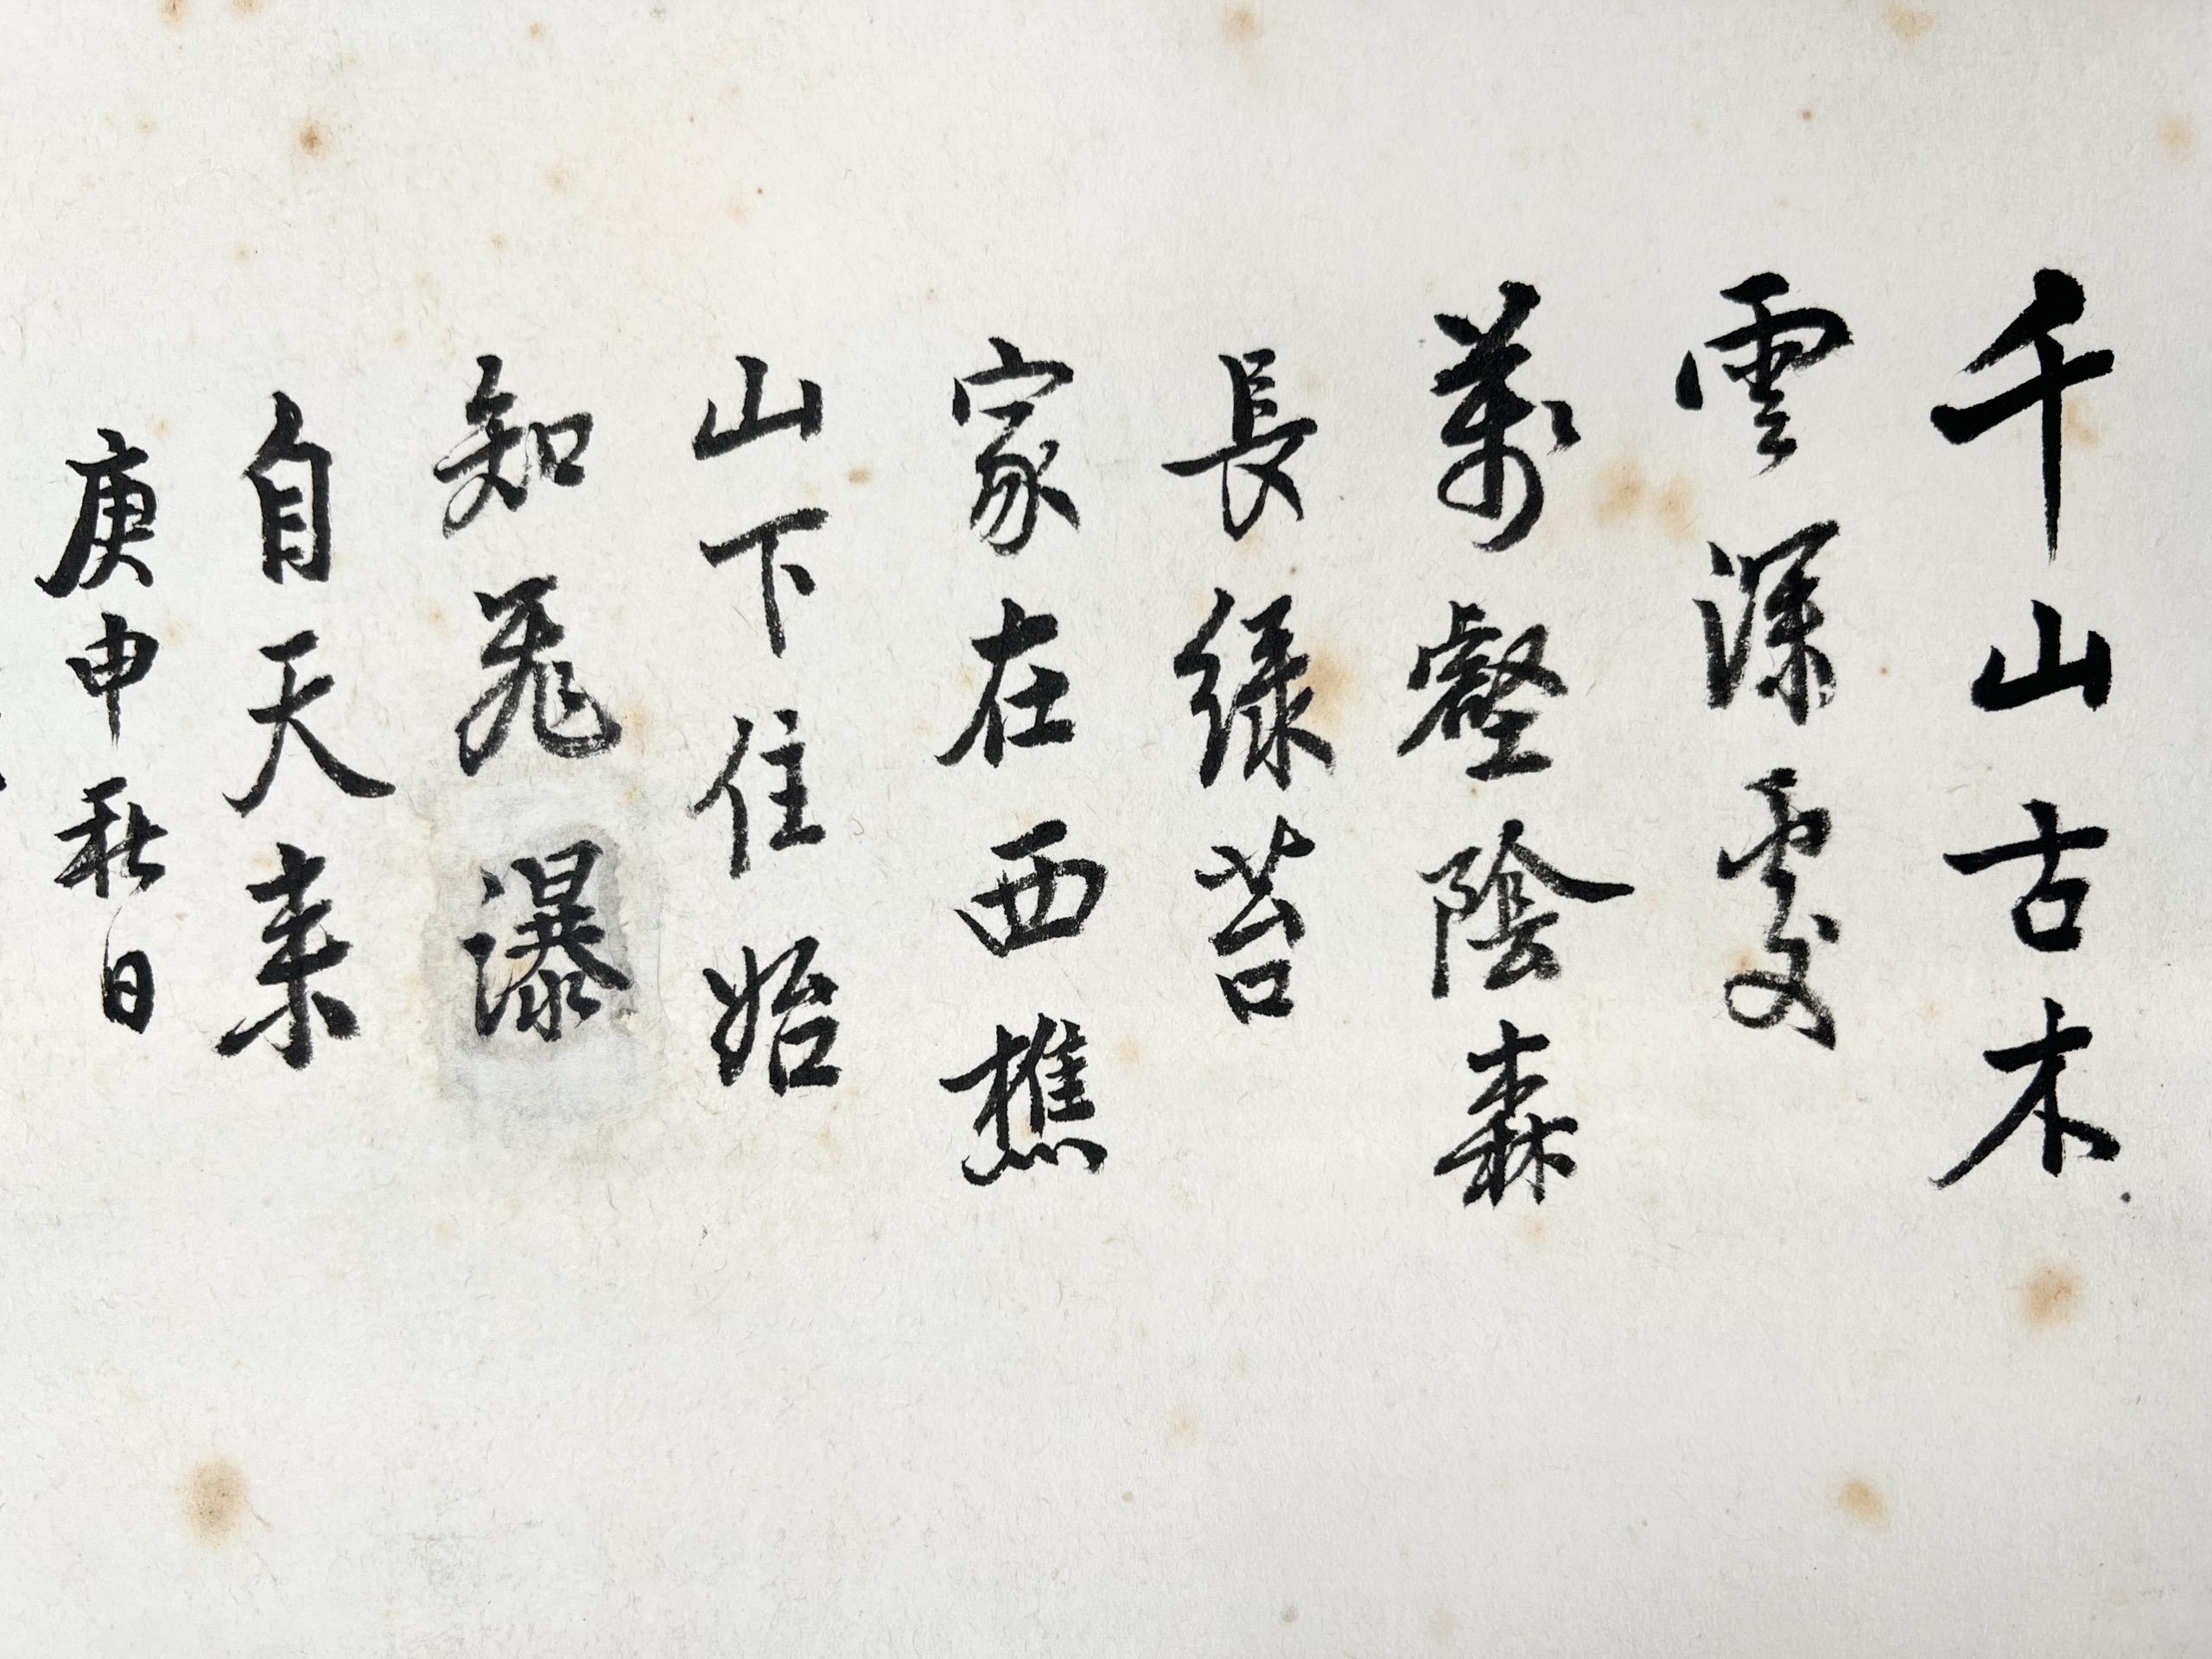 千山古木
雲深處
萬壑陰森
長緑苔
家在西樵
山下住始
知飛瀑
自天来
庚申秋日